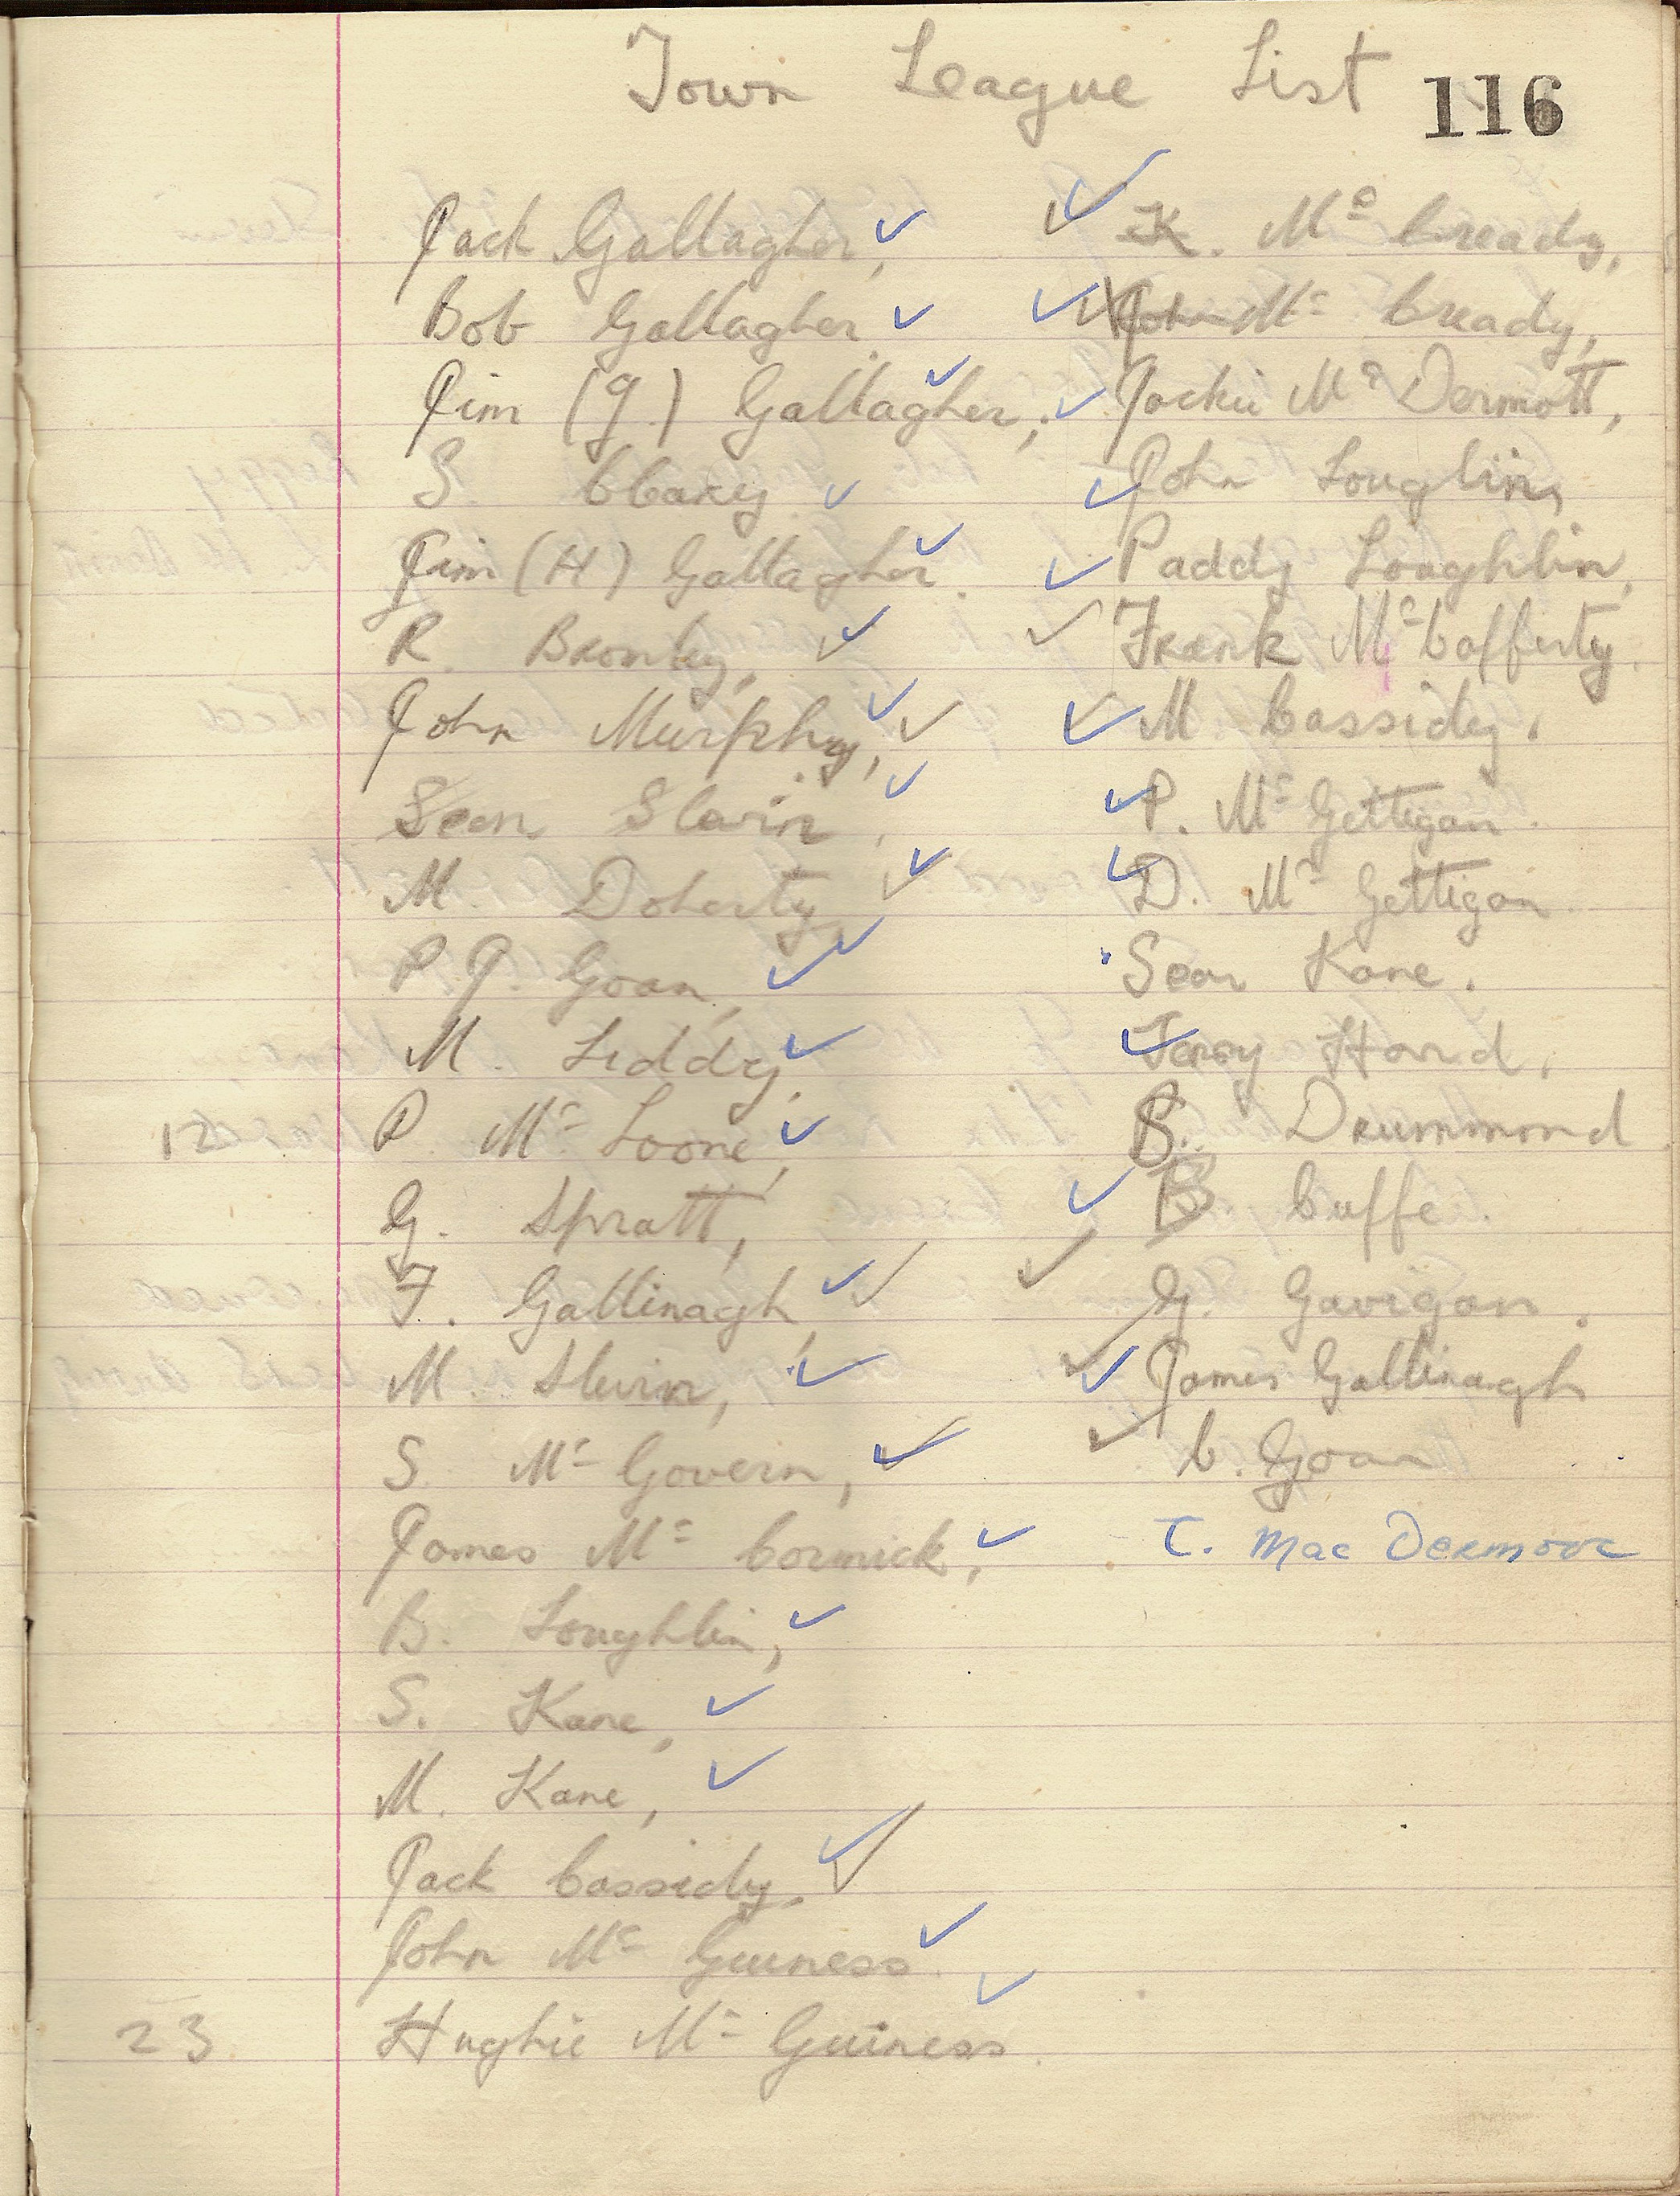 Town League List 116
Jack Gallagher,
Bob Gallagher,
Jim (J.) Gallagher,
S. Clarey
Jim (H) Gallagher.
R. Bromley,
John Murphy,
Sean Slavin,
M. Doherty,
P.J. Goan,
M. Liddy,
12 P. Mc Loone,
G. Spratt,
F. Gallinagh,
M. Slevin,
S. Mc Govern,
James Mc Cormick,
B. Loughlin,
S. Kane,
M. Kane,
Jack Cassidy.
John Mc Guiness.
23 Hughie Mc Guiness.
K. Mc Cready,
John Mc Cready,
Jackie Mc Dermott,
John Louglin,
Paddy Loughlin,
Frank Mc Cafferty.
M Cassidy.
P. Mc Gettigan.
D. Mc Gettigan.
Sean Kane.
Terry Hand.
Drummond
B Cuffe.
G. Gavigan.
James Gallinagh
C. Goan
T. Mac Dermott